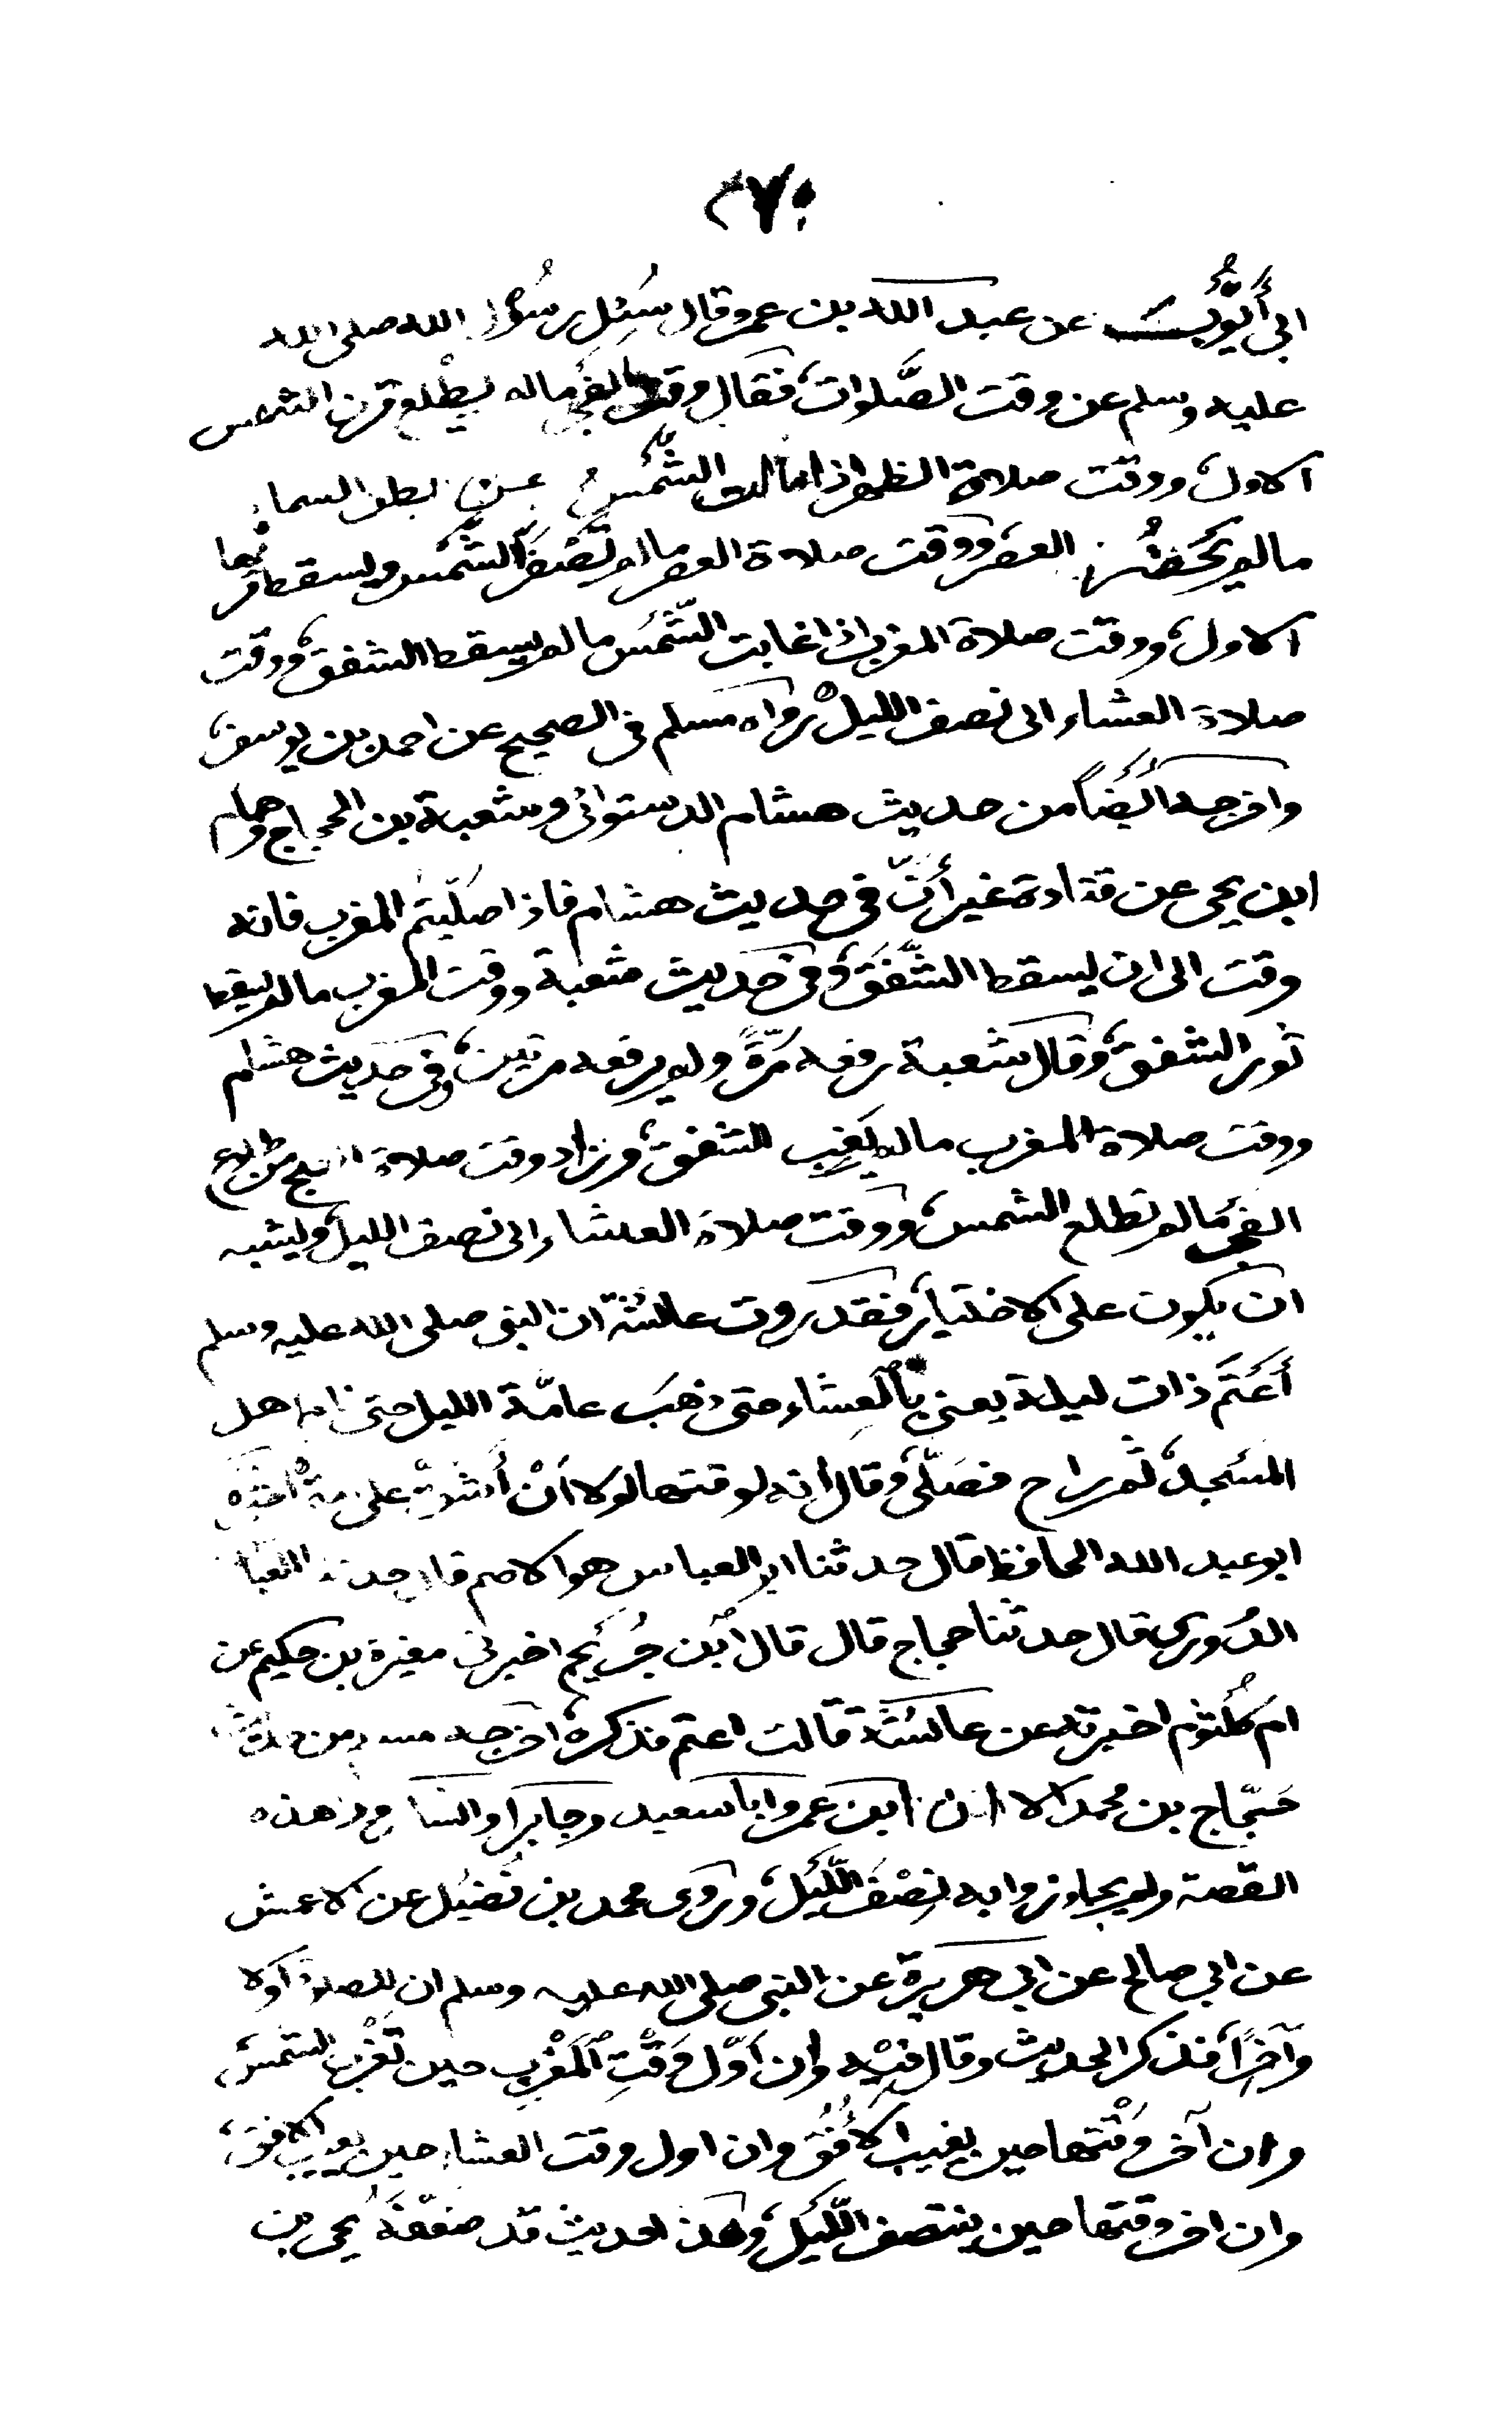 ٢٧٠
ابي أَيُّوبَ عن عبد الله بن عمرو قال سُئِل رسُول الله صلى الله
عليه وسلم عن وقت الصَّلوات، فقال وقت الفجر مالم يطْلع قرن الشمس
الاول، ووقت صلاة الظهر اذا مالت الشَّمسُ عن بطن السماء
مالم يَحْضُر العصر، ووقت صلاة العصر مالم تَصْفَرّ الشَّمس ويسقط قرنها
الاول، ووقت صلاة المغرب اذا غابت الشَّمس مالم يسقط الشفق، ووقت
صلاة العشاء الى نصف الليل، رواه مسلم في الصحيح عن احمد بن يوسف،
واخرجه ايضاً من حديث هشام الدستوائى وشعبة بن الحجاج وهمام
ابن يحى عن قتادة غير أنّ في حديث هشام فاذا صلّيتم المغرب فانه
وقت الى ان يسقط الشَّفَق، وفى حديث شعبة ووقت المغرب مالم يسقط
ثور الشفق، وقال شعبة رفعه مَرّةً ولم يرفعه مرتين، وفى حديث هشام
ووقت صلاة المغرب مالم يَغِب الشفق، وزاد وقت صلاة الصبح من طلوع
الفجر مالم تطلع الشمس، ووقت صلاة العشاء الى نصف الليل، ويشبه
ان يكون على الاختيار، فقد روت عائشة ان النبى صلى الله عليه وسلم
أَعْتَمَ ذات ليلة يعنى بالْعِشاء حتى ذهبَ عامّة الليل حتى نام اهل
المَسْجد، ثم راح فصَلّى، وقال انه لوقتها لولا اَنْ أشُقّ على
ابو عبد الله الحافظ قال حدثنا ابو العباس هو الاصم قال حدثنا العباس
الدُورى قال حدثنا حجاج قال قال ابْن جُرَيْج اخبرنى مغيرة بن حكيم عن
ام كُلْثوم اخبرته عن عائشة قالت اعتم فذكره، اخرجه مسلم من حديث
حَجّاج بن محمد، الا ان ابن عمر وابا سعيد وجابرا وانسا هذه
القصة ولم يجاوزوا به نِصْفَ اللَّيْل، وروى محمد بن فُضَيْل عن الاعمش
عن ابي صالح عن ابي هريرة عن النبى صلى الله عليه وسلم ان للصلاة اولا
وآخِراً، فذكر الحديث وقال فيْه وان اَوّل وَقْتِ الْمَغْرِب حين تَغْرب الشمس،
وان آخر وَقْتها حين يغيب الاُفُق، وان اول وقت العشاء حين يغيب الافق،
وان اخر وقتها حين ينتصف اللَّيْل، وهذا الحديث قد ضعّفَه يحى بن